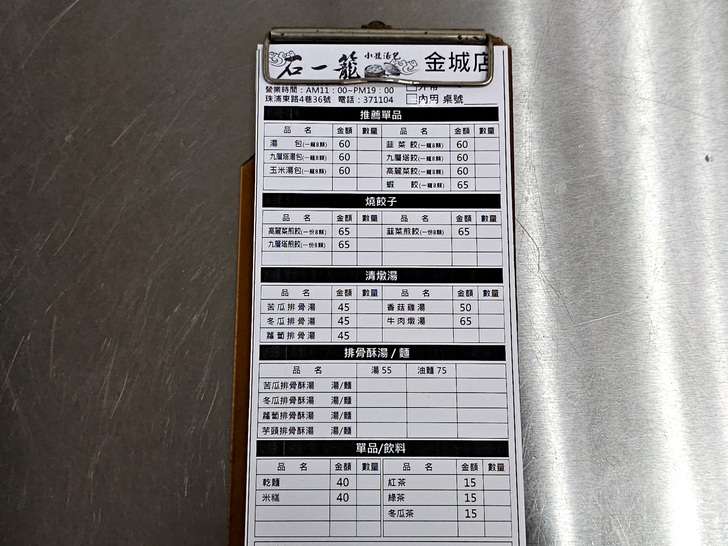 石一籠 小籠湯包 金城店
營業時間：AM11：00~PM19：00 □外帶
珠浦東路4巷36號 電話：371104 □內用 桌號
推薦單品
品 名 金額 數量 品 名 金額 數量
湯 包(一籠8顆) 60 韮菜餃(一籠8顆) 60
九層塔湯包(一籠8顆) 60 九層塔餃(一籠8顆) 60
玉米湯包(一籠8顆) 60 高麗菜餃(一籠8顆) 60
蝦 餃(一籠8顆) 65
燒餃子
品 名 金額 數量 品 名 金額 數量
高麗菜煎餃(一份8顆) 65 韮菜煎餃(一份8顆) 65
九層塔煎餃(一份8顆) 65
清燉湯
品 名 金額 數量 品 名 金額 數量
苦瓜排骨湯 45 香菇雞湯 50
冬瓜排骨湯 45 牛肉燉湯 65
蘿蔔排骨湯 45
排骨酥湯 / 麵
品 名 湯 55 油麵 75
苦瓜排骨酥湯 湯/麵
冬瓜排骨酥湯 湯/麵
蘿蔔排骨酥湯 湯/麵
芋頭排骨酥湯 湯/麵
單品/飲料
品 名 金額 數量 品 名 金額 數量
乾麵 40 紅茶 15
米糕 40 綠茶 15
冬瓜茶 15